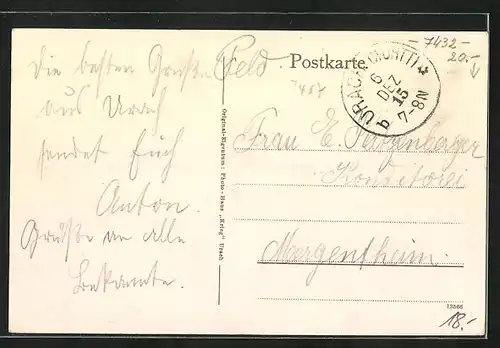 Die besten Grüße
aus Urach
sendet Euch
Anton.
Grüße an alle
Bekannte.
Feld Postkarte
URACH (WÜRTT) *
6
DEZ
15
7-8N
b
-7432-
20.-
Frau E.
Konditorei
Mergentheim.
Original-Eigentum: Photo-Haus „Krieg" Urach
13566
18.-